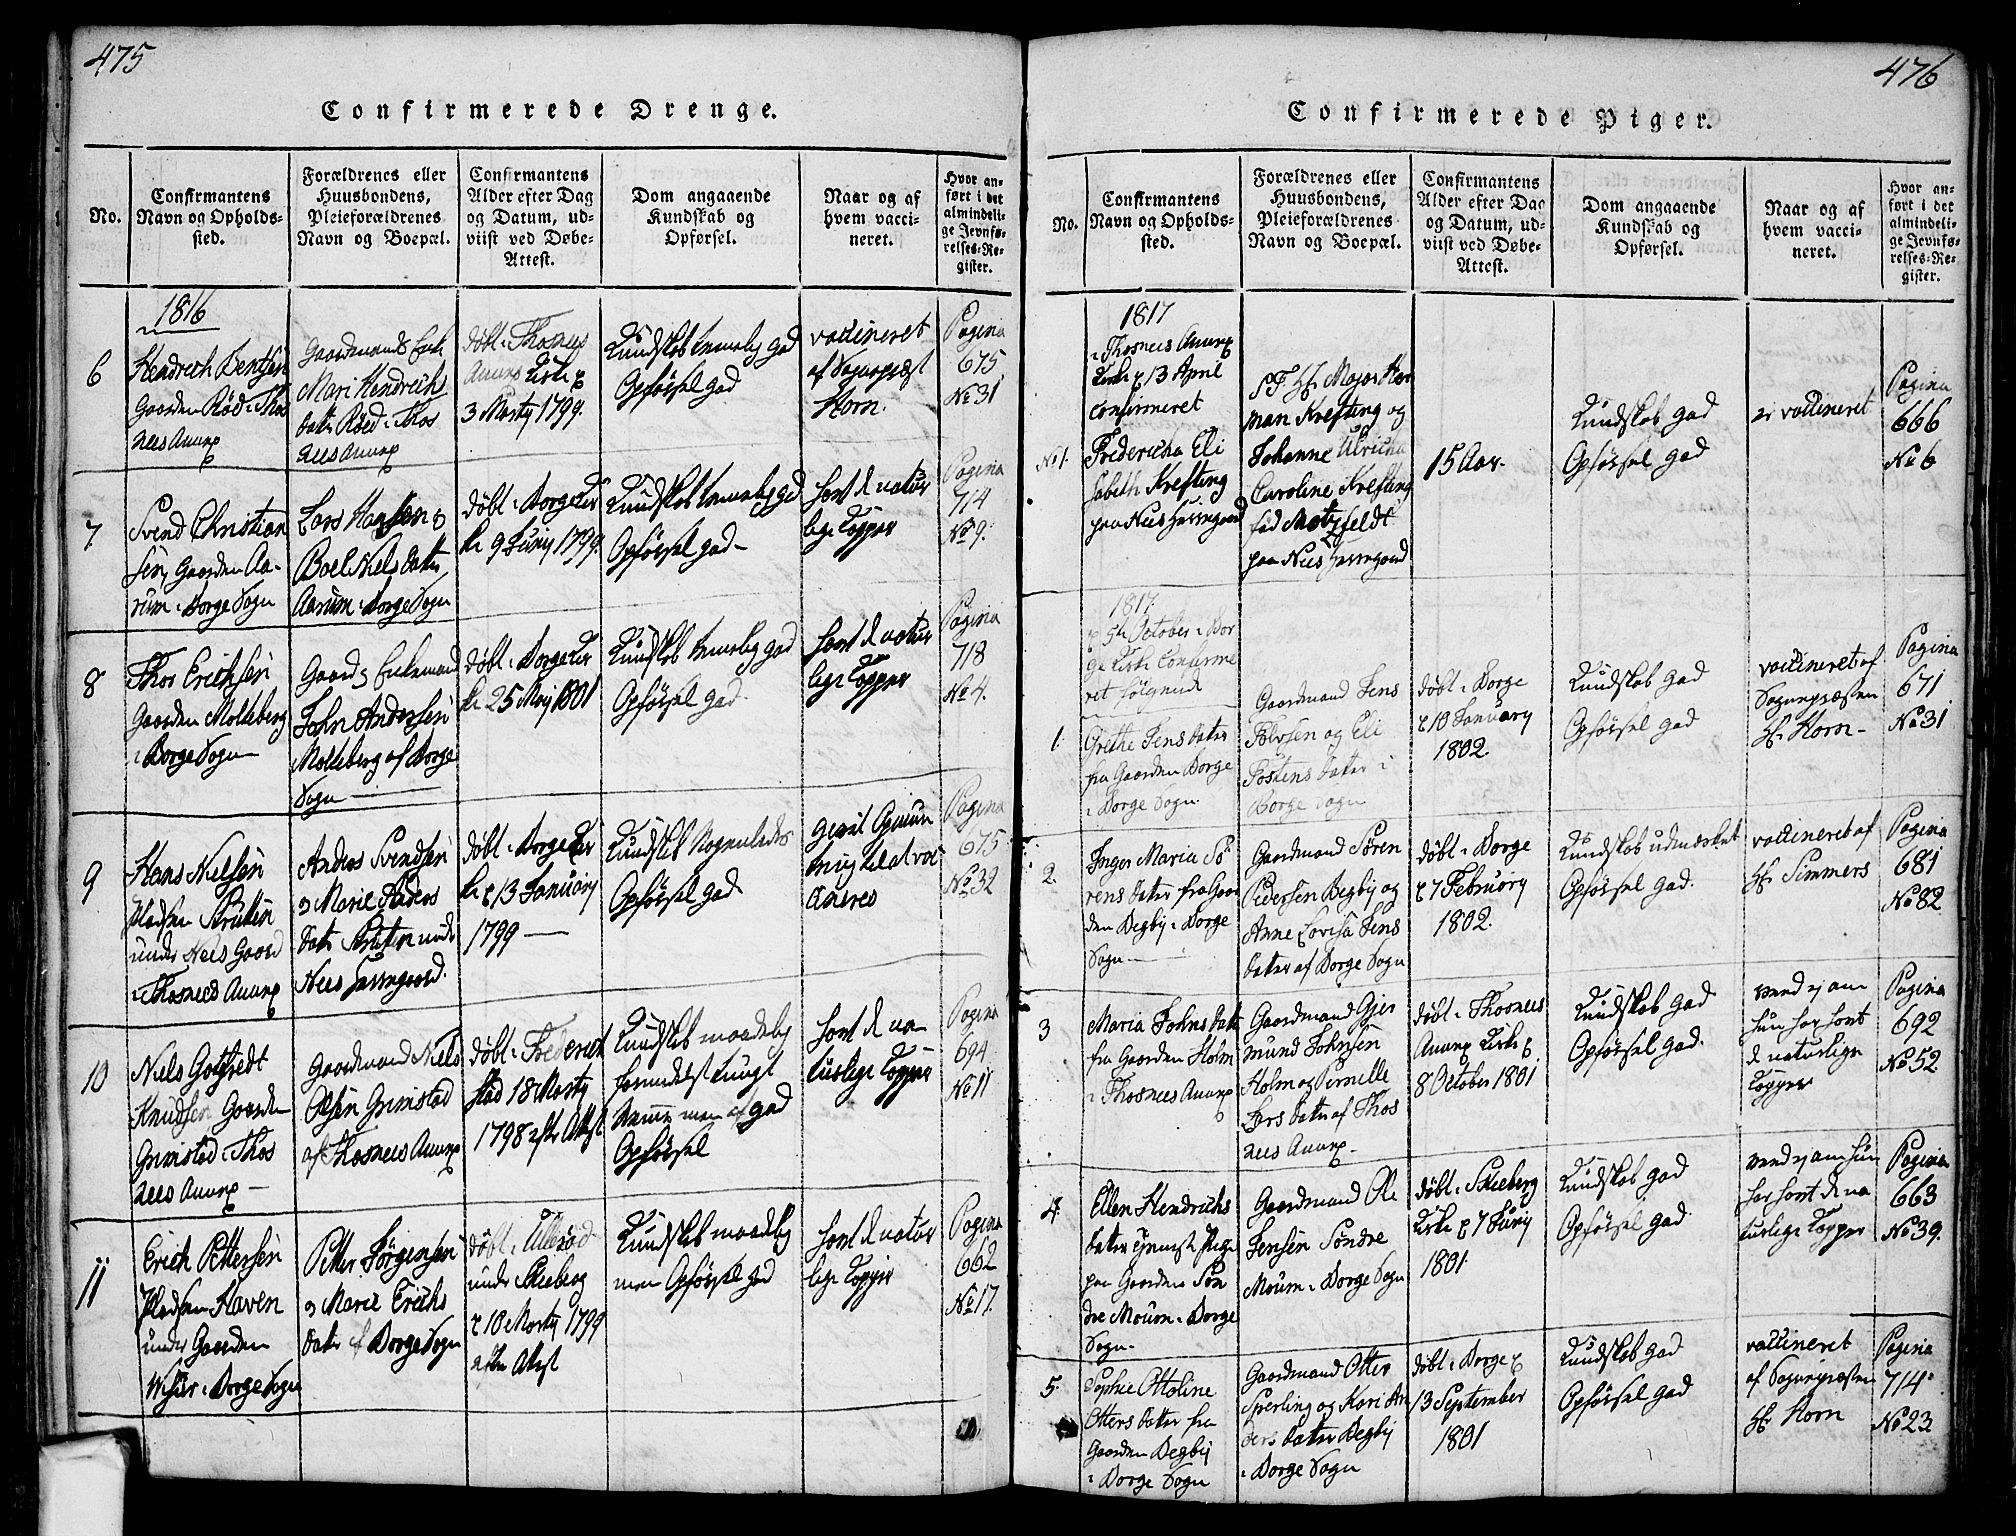 475
Confirmerede Drenge.
No.
Confirmantens
Navn og Opholds-
sted.
Forældrenes eller
Huusbondens,
Pleieforældrenes
Navn og Boepæl.
Confirmantens
Alder efter Dag
og Datum, ud-
viist ved Døbe-
Attest.
Dom angaaende
Kundskab og
Opførsel.
Naar og af
hvem vacci-
neret.
Hvor an-
ført i det
almindeli-
ge Jevnfø-
relses-Re-
gister.
1816
6
Hendrich Bentsen
Gaarden Röd i Thos
nees Annex
Gaardmands Enke
Mari Hendrichs
datter Röed i Thos
nees Annex
döbt i Thosnees
Annex Kirke
3 Marty 1799.
Kundskab temelig god
Opförsel god
vaccineret
af Sognepræst
Horn.
Pagina
675
No 31
7
Svend Christian
sen Gaarden Aa-
rum i Borge Sogn
Lars Hansen &
Boel Niels datter
Aarum i Borge Sogn
döbt i Borge Kir
ke 9 Juny 1799.
Kundskab temelig god
Opförsel god-
havt de natur
lige Kopper
Pagina
714
No 9.
8
Thor Erichsen
Gaarden Molleberg
i Borge Sogn
Gaards Enkemand
John Andersen
Molleberg af Borge
Sogn
döbt i Borge Kir
ke 25 Maj 1801
Kundskab temelig god
Opförsel god.
havt de natur
lige Kopper
Pagina
718
No 4.
9
Hans Nielsen
Pladsen Bråten
under Nees Gaard
i Thosnees Annex
Anders Svendsen
& Marie Anders
datter Bråten under
Nees Herregaard.
döbt i Borge Kir
ke 13 January
1799
Kundskab Nogenledes
Opförsel god
Pagina
675
No 32
10
Niels Gotfredt
Knudsen Gaarden
Grimstad i Thos
nees Annex
Gaardmand Niels
Olsen Grimstad
af Thosnees Annex
döbt i Friderich
stad 18 Marty
1798 efter Attest
Kundskab maadelig
Opförsel
havt de na
turlige Kopper
Pagina
694
No 11
11
Erich Pettersen
Pladsen Haven
under Gaarden
i Borge Sogn
Petter Jörgensen
& Marie Erichs
datter af Borge Sogn
döbt i Ulleröd
under Skieberg
10 Marty 1799
efter Attest
Kundskab maadelig
men Opförsel god
havt de natur
lige Kopper
Pagina
662
No 17.
476
Confirmerede Piger.
No.
Confirmantens
Navn og Opholds-
sted.
Forældrenes eller
Huusbondens,
Pleieforældrenes
Navn og Boepæl.
Confirmantens
Alder efter Dag
og Datum, ud-
viist ved Døbe-
Attest.
Dom angaaende
Kundskab og
Opførsel.
Naar og af
hvem vacci-
neret.
Hvor an-
ført i det
almindeli-
ge Jevnfø-
relses-Re-
gister.
1817
i Thosnees Annex
Kirke 13 April
confirmeret
No 1.
Fredericha Eli
sabeth Krefting
paa Nees Herregaard
Hr Major Her
man Krefting og
Johanne Ulricha
Caroline Krefting
föd Motzfeldt
paa Nees Herregaard
15 Aar.
Kundskab god
Opförsel god
er vaccineret
Pagina
666
No 6
1817.
5te October i Bor
ge Kirke Confirme
ret fölgende
1.
Grethe Jens datter
fra Gaarden Borge
i Borge Sogn.
Gaardmand Jens
Tolvsen og Eli
Tostens datter i
Borge Sogn
döbt i Borge
10 January
1802.
Kundskab god
Opförsel god
vaccineret af
Sognepræsten
Hr Horn-
Pagina
671
No 31
2.
Inger Maria Sö
rens datter fra Gaar
den Begby i Borge
Sogn
Gaardmand Sören
Pedersen Begby og
Anne Lovisa Jens
datter af Borge Sogn
döbt i Borge
7 February
1802.
Kundskab udmærket
Opförsel god.
vaccineret af
Hr Simmers
Pagina
681
No 82
3
Maria Johns datter
fra Gaarden Holm
i Thosnees Annex
Gaardmand Gjer
mund Johnsen
Holm og Pernille
Lars datter af Thos
nees Annex.
döbt i Thosnees
Annex Kirke
8 October 1801
Kundskab god
Opförsel god.
hun har havt
de naturlige
Kopper
Pagina
692
No 52
4.
Ellen Hendrichs
datter tjeneste Pige
paa Gaarden Sön
dre Moum i Borge
Sogn
Gaardmand Ole
Jensen Söndre
Moum i Borge Sogn
döbt i Skieberg
Kirke 7 Juny
1801.
Kundskab god
Opförsel god
har havt de na
turlige Kopper
Pagina
663
No 39.
5.
Sophie Ottoline
Otters datter fra
Gaarden Begby
i Borge Sogn
Gaardmand Otter
Sperling og Kari An
ders datter Begby
i Borge Sogn
döbt i Borge
13 September
1801
Kundskab god
Opförsel god
vaccineret
af Sognepræsten
Hr Horn
Pagina
714
No 23